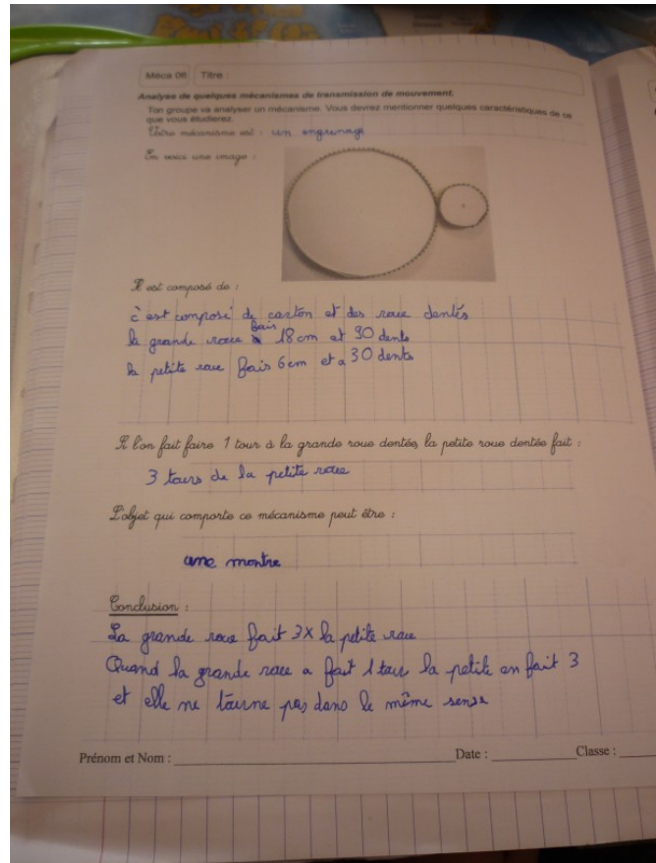 Méca 06 Titre :
Analyse de quelques mécanismes de transmission de mouvement.
Ton groupe va analyser un mécanisme. Vous devrez mentionner quelques caractéristiques de ce
que vous étudierez.
Votre mécanisme est : un engrenage
En voici une image :
Il est composé de :
c'est composé de carton et des roue dentés
la grande roue fais 18 cm et 90 dents
la petite roue fais 6 cm et a 30 dents
Si l'on fait faire 1 tour à la grande roue dentée, la petite roue dentée fait :
3 tours de la petite roue
L'objet qui comporte ce mécanisme peut être :
une montre
Conclusion :
La grande roue fait 3X la petite roue
Quand la grande roue a fait 1 tour la petite en fait 3
et elle ne tourne pas dans le même sense
Prénom et Nom : Date : Classe :